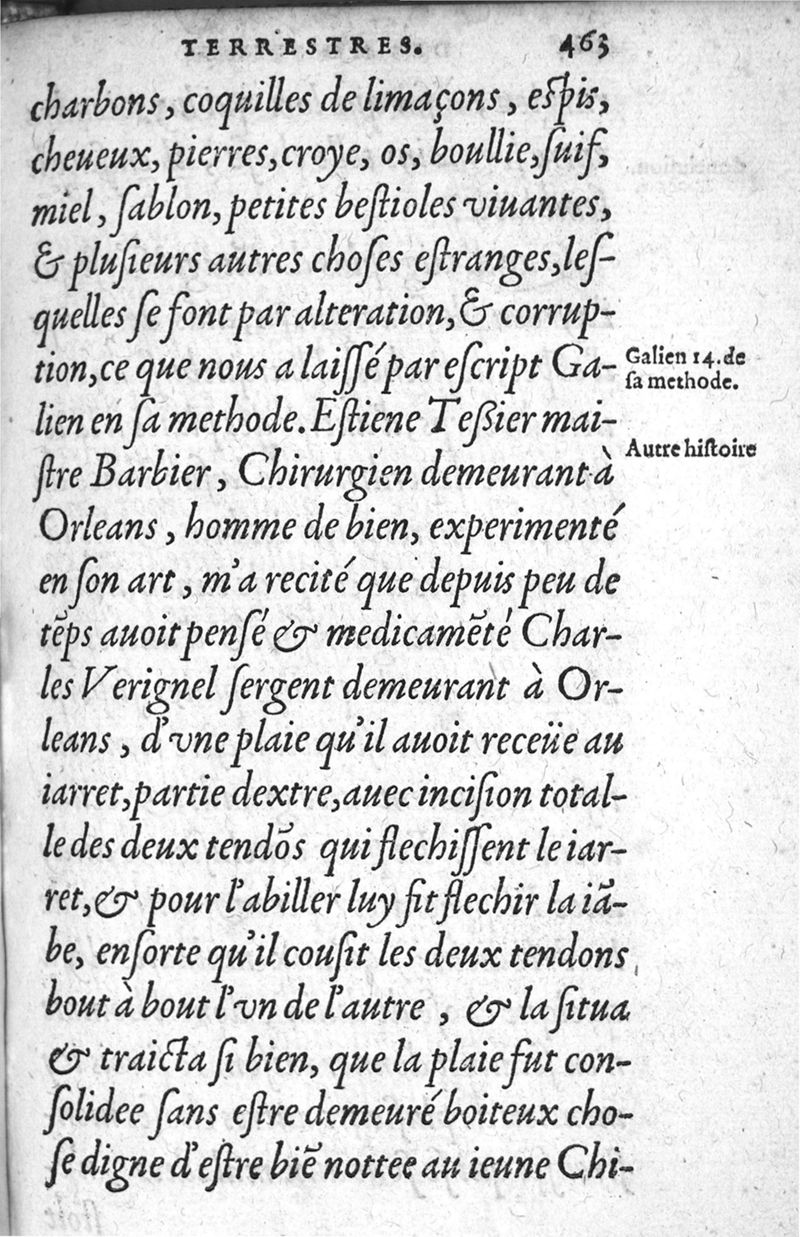 TERRESTRES. 463
charbons, coquilles de limaçons, eſpis,
cheueux, pierres, croye, os, boullie, ſuif,
miel, ſablon, petites beſtioles viuantes,
& pluſieurs autres choſes eſtranges, leſ-
quelles ſe font par alteration, & corrup-
tion, ce que nous a laiſſé par eſcript Ga-
Galien 14. de
ſa methode.
lien en ſa methode. Eſtiene Teßier mai-
ſtre Barbier, Chirurgien demeurant à
Autre hiſtoire
Orleans, homme de bien, experimenté
en ſon art, m'a recité que depuis peu de
tẽps auoit penſé & medicamẽté Char-
les Verignel ſergent demeurant à Or-
leans, d'vne plaie qu'il auoit receüe au
iarret, partie dextre, auec inciſion total-
le des deux tendõs qui flechiſſent le iar-
ret, & pour l'abiller luy fit flechir la iã-
be, enſorte qu'il couſit les deux tendons
bout à bout l'vn de l'autre, & la ſitua
& traicta ſi bien, que la plaie fut con-
ſolidee ſans eſtre demeuré boiteux cho-
ſe digne d'eſtre biẽ nottee au ieune Chi-